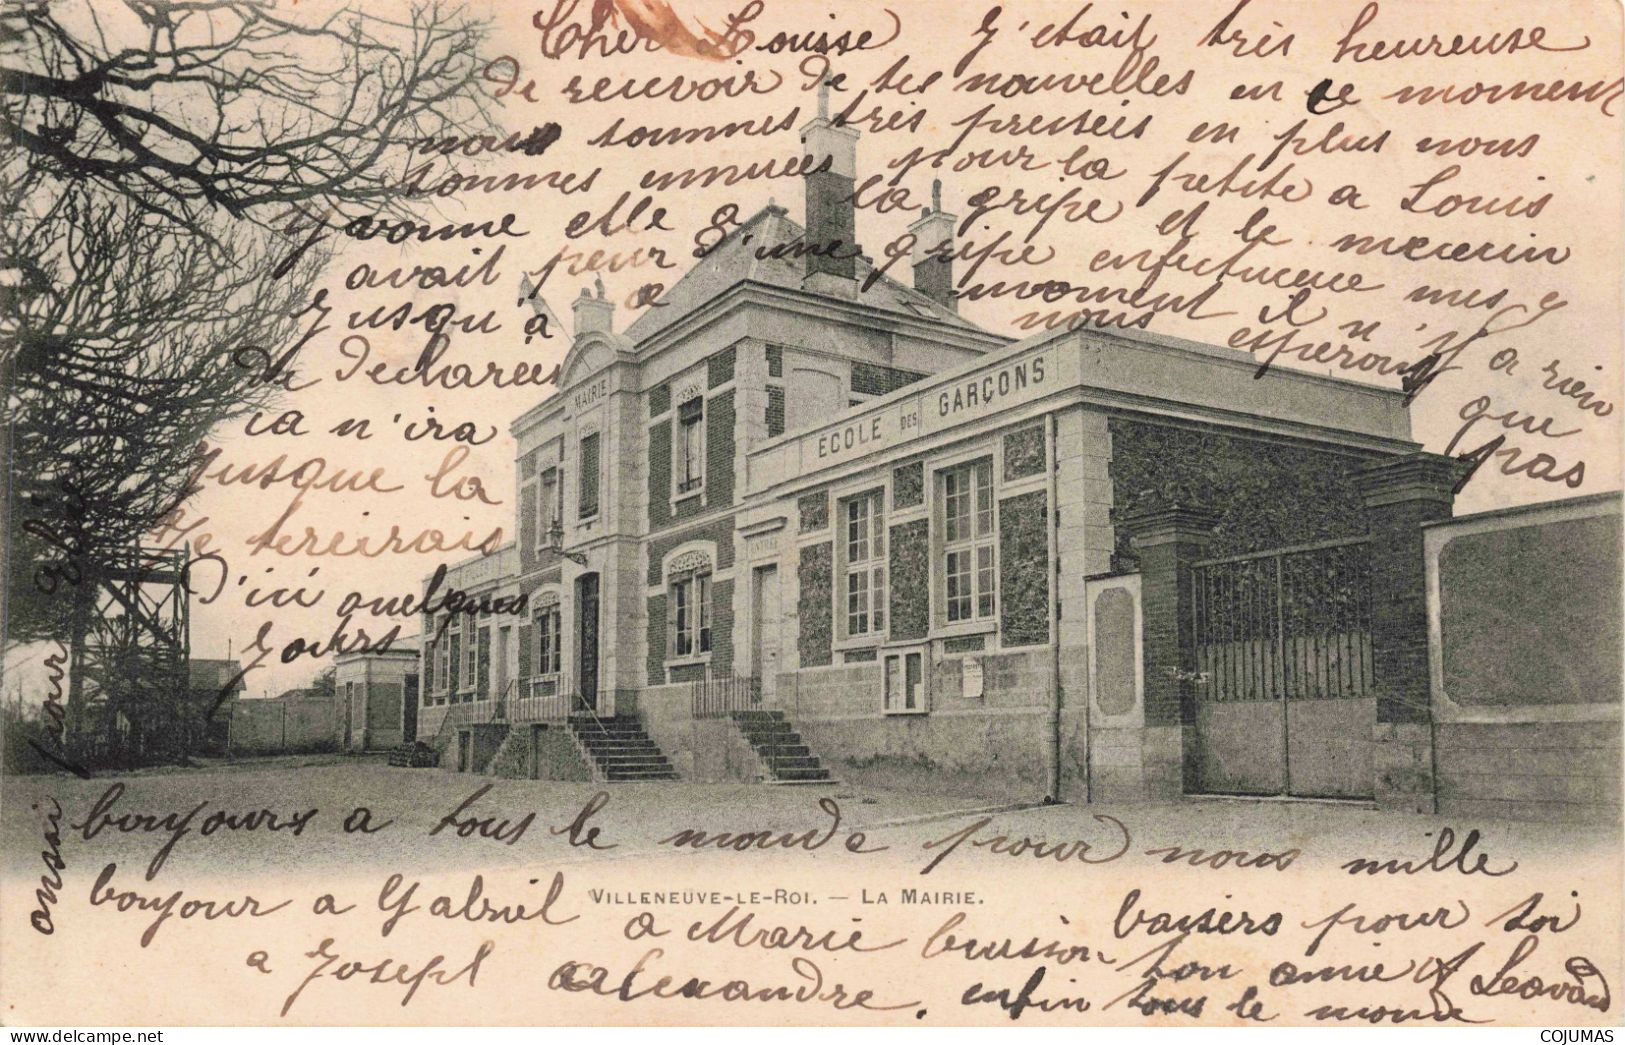 Cher Louisse J'etait très heureuse
de recevoir de tes nouvelles en ce moment
nous sommes très pressées en plus nous
sommes ennuiées pour la petite a Louis
Yvonne elle a la gripe et le medecin
avait peur d'une gripe enfectueuse mes
Jusqu'à ce moment il n'y a rien
de declarées nous esperons que
ca n'ira pas
Jusque la
Je tecrirais
d'ici quelques
Jours
MAIRIE
ÉCOLE DES GARÇONS
bonjours a tous le monde pour nous mille
bonjour a Gabriel a Marie buisson baisers pour toi
VILLENEUVE-LE-ROI. — LA MAIRIE.
a Joseph Alexandre. enfin tous le monde
ton amie
aussi pour
COJUMAS